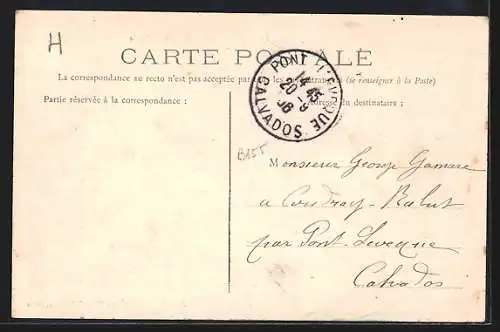 H
CARTE POSTALE
La correspondance au recto n'est pas acceptée par les (se renseigner à la Poste)
Partie réservée à la correspondance :
Adresse du destinataire :
PONT L'EVEQUE
14 45
20 -9
08
CALVADOS
B155
Monsieur George Gamare
a Coudray - Rabut
par Pont. Leveque
Calvados